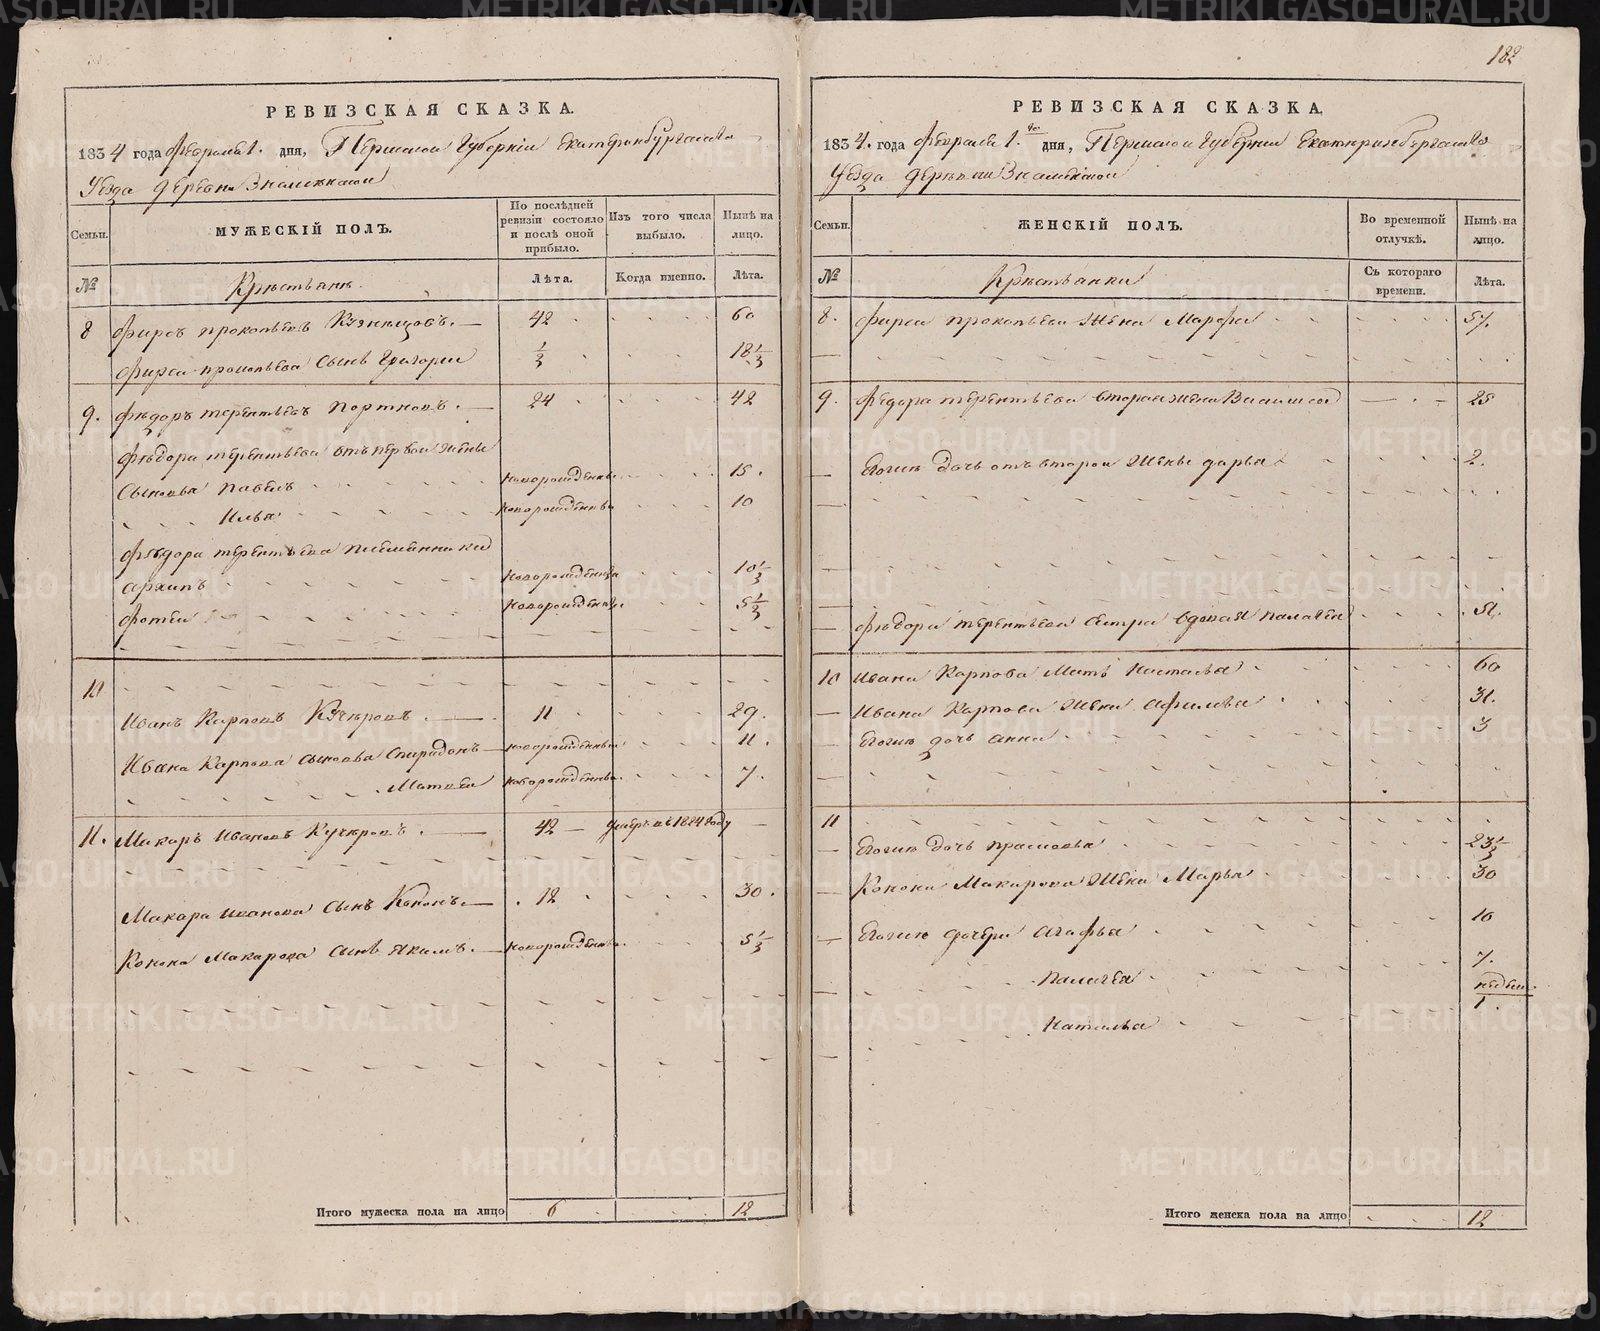 182
РЕВИЗСКАЯ СКАЗКА.
1834 года февраля 1. дня, Пермской Губернiи Екатеринбургскаго
Уезда деревни Знаменской
Семьи.
МУЖЕСКІЙ ПОЛЪ.
По послѣдней ревизіи состояло и послѣ оной прибыло.
Изъ того числа выбыло.
Нынѣ на лицо.
№
Крестьяне
Лѣта.
Когда именно.
Лѣта.
8 Фирсъ прокопьевъ Кузнецовъ. 42 60
Фирса прокопьева Сынъ Григорей 1/2 18 1/2
9. Федоръ терентьевъ портновъ. 24 42
Федора терентьева отъ первой жены
Сыновья Павелъ новорожденны 15.
Илья новорожденны 10
Федора терентьева племянники
архипъ новорожденны 10 1/2
фотей новорожденны 5 1/2
10
Иванъ Карповъ Кучеровъ 11 29.
Ивана Карпова сыновья Спиридонъ новорожденны 11.
Матвей новорожденны 7.
11. Макаръ Ивановъ Кучеровъ. 42 умеръ въ 1824 году
Макара Иванова Сынъ Кононъ. 12 30.
Конона Макарова Сынъ Якимъ. новорожденны 5 1/2
Итого мужеска пола на лицо 6 12
РЕВИЗСКАЯ СКАЗКА.
1834. года февраля 1. го дня, Пермской Губернии Екатеринбергскаго
Уезда деревни Знаменской
Семьи.
ЖЕНСКІЙ ПОЛЪ.
Во временной отлучкѣ.
Нынѣ на лицо.
№
Крестьянки
Съ котораго времени.
Лѣта.
8. Фирса прокопьева Жена Марфа 57.
9. Федора терентьева вторая жена Василиса 25
Еогию дочь отъ второй Жены дарья 2.
Федора терентьева Сестра вдовая палагея 51.
10 Ивана Карпова Мать Наталья 60
Ивана Карпова Жена Афимья 31.
Еогию дочь анна 3
11
Еогию дочь прасковья 23 1/2
Конона Макарова Жена Марья 30
Еогию дочери Агафья 10
Палагея 7.
недели
Наталья 1.
Итого женска пола на лицо 12
METRIKI.GASO-URAL.RU